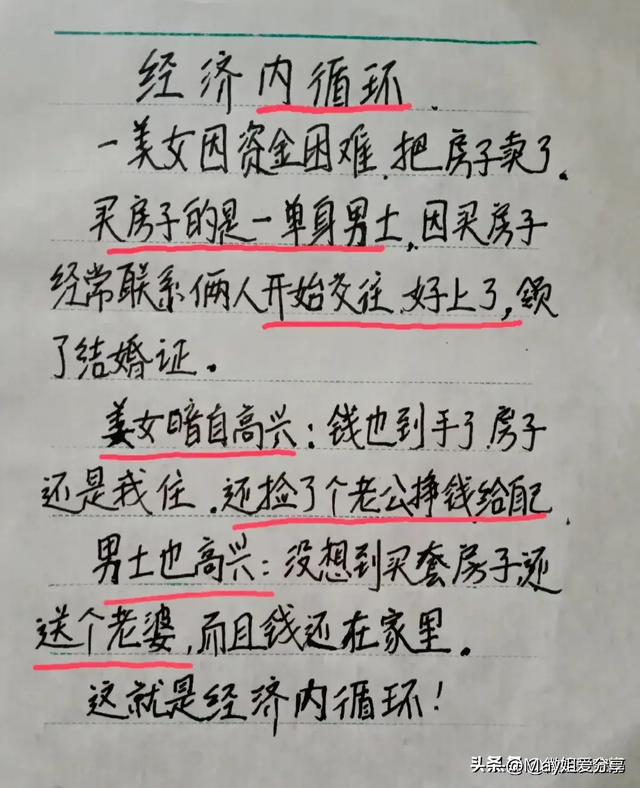 经济内循环.
一美女因资金困难.把房子卖了.
买房子的是一单身男士,因买房子
经常联系俩人开始交往.好上了,领
了结婚证.
美女暗自高兴:钱也到手了房子
还是我住.还捡了个老公挣钱给配.
男士也高兴:没想到买套房子还
送个老婆,而且钱还在家里.
这就是经济内循环!
头条
May姐爱分享